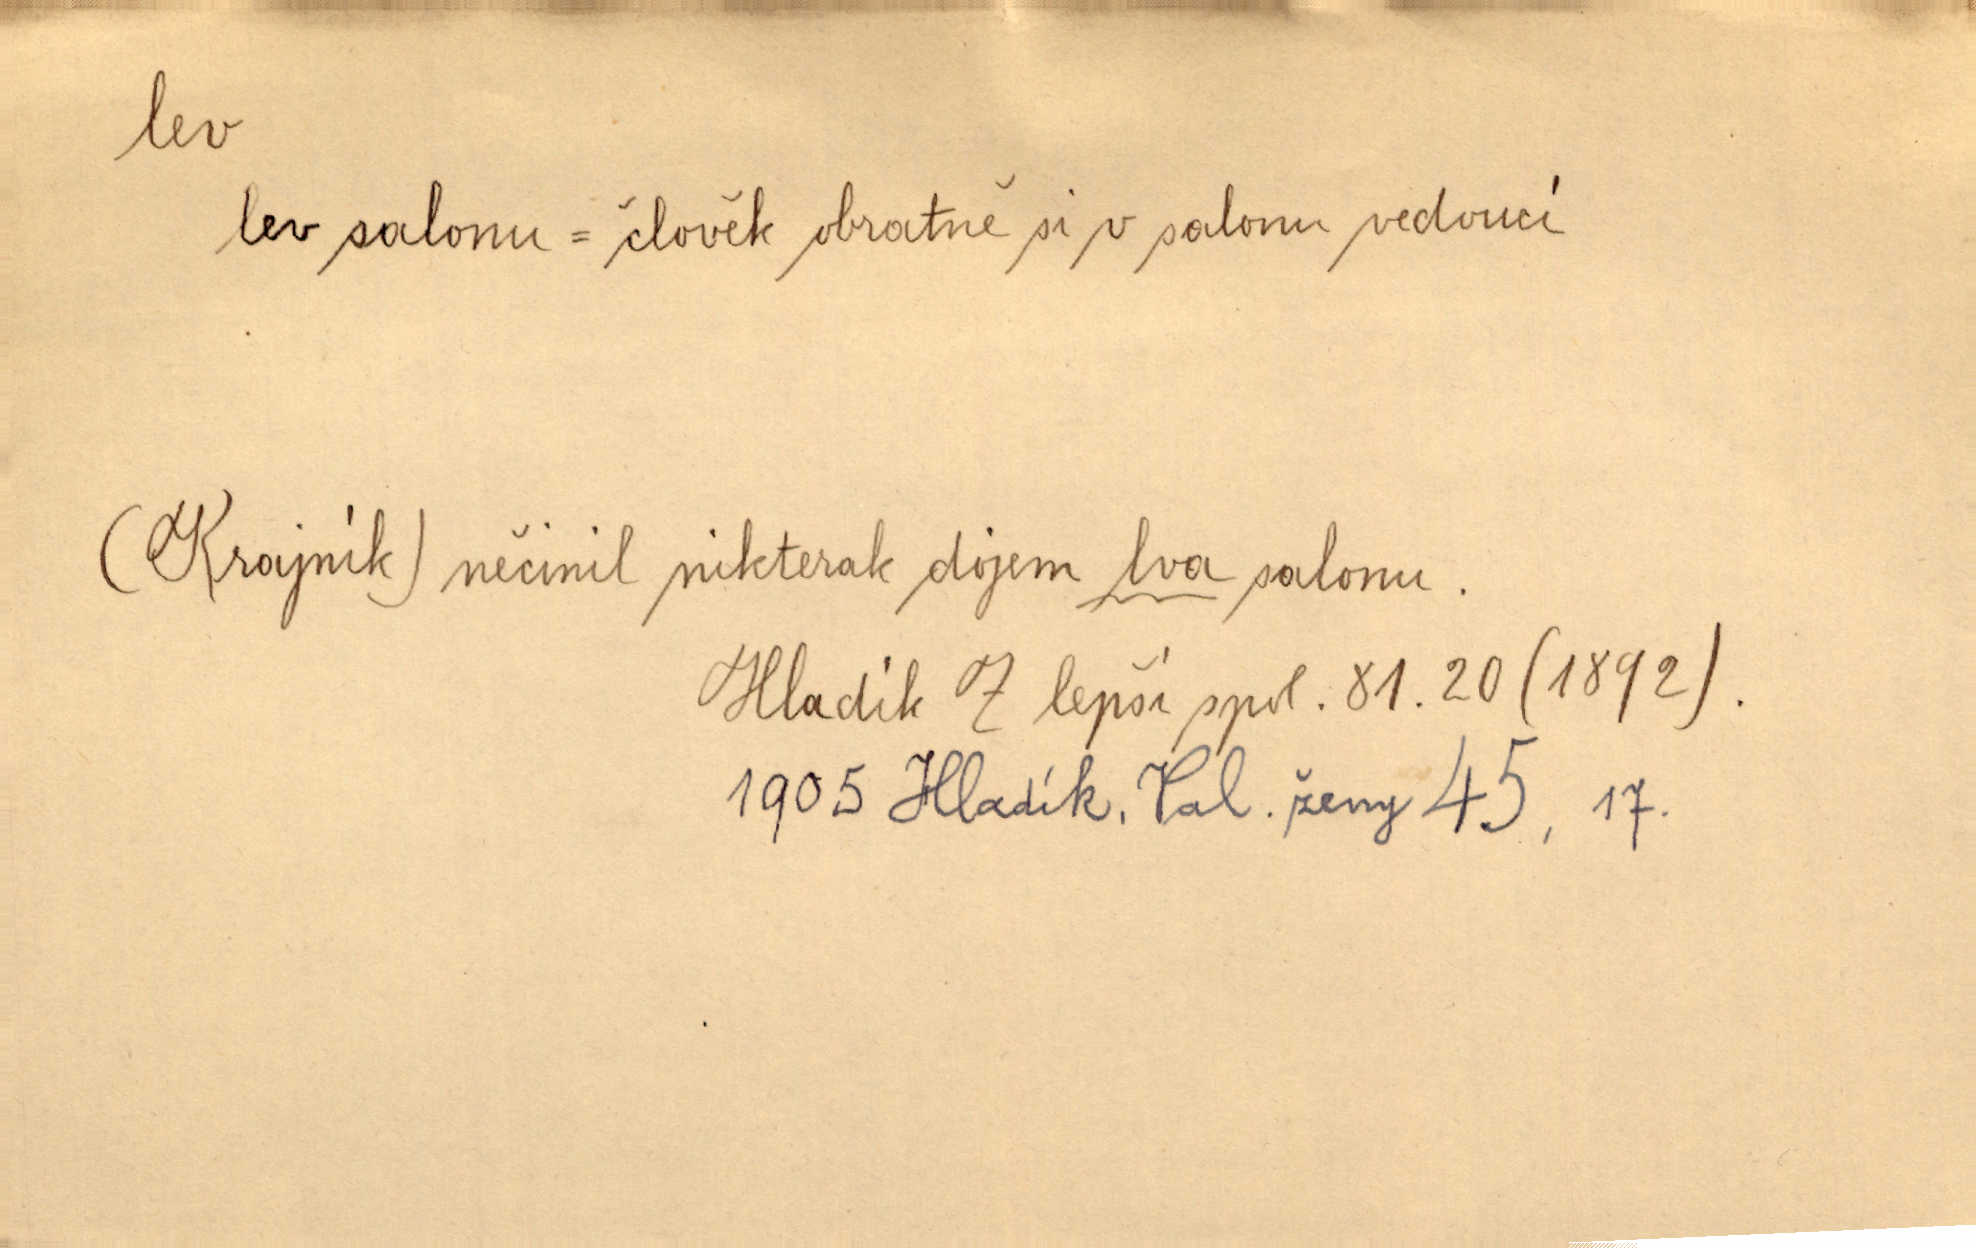 lev
lev salonu = člověk obratně si v salonu vedoucí
(Krajník) něčinil nikterak dojem lva salonu.
Hladík Z lepší spol. 81.20 (1892).
1905 Hladík, Val. ženy 45, 17.